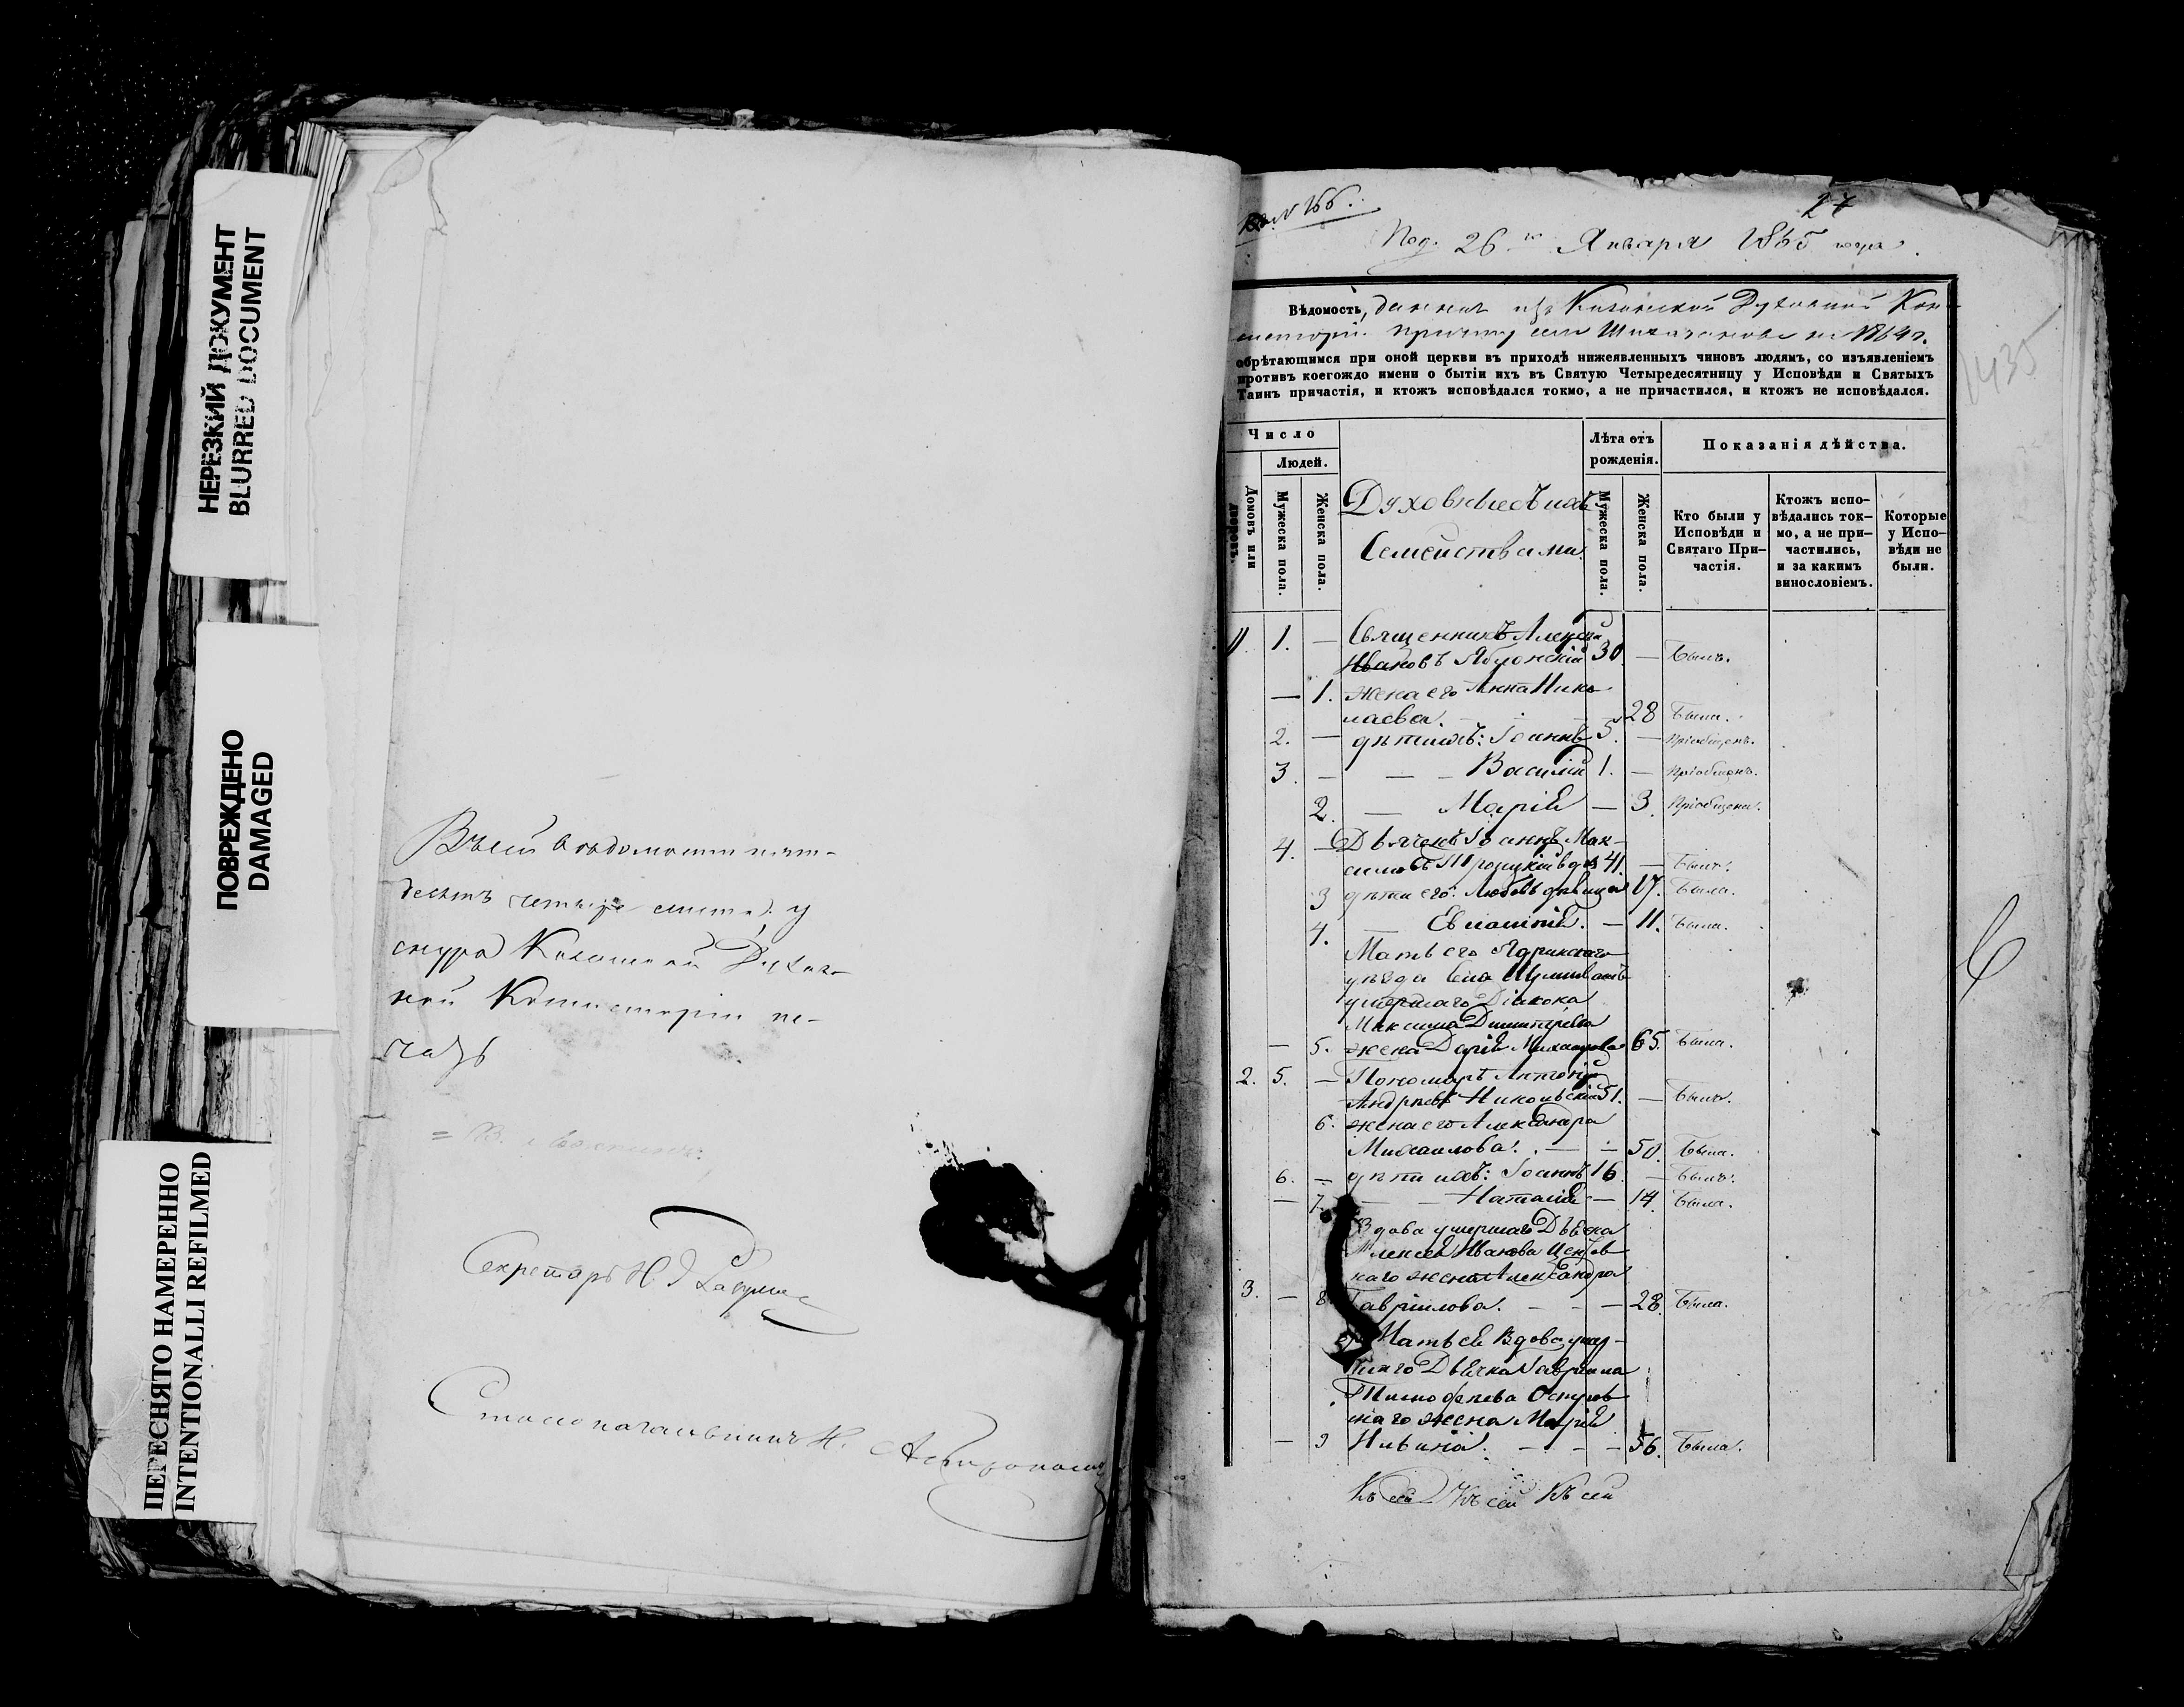 НЕРЕЗКИЙ ДОКУМЕНТ
BLURRED DOCUMENT
ПОВРЕЖДЕНО
DAMAGED
ПЕРЕСНЯТО НАМЕРЕННО
INTENTIONALLI REFILMED
Въ сей ведомости пять-
десятъ четыре листа, у
снура Казанской Духов-
ной Консисторіи пе-
чать
Секретарь Н
Столоначальникъ Н.
№ 166.
27
Под. 26 го Января 1865 года.
Вѣдомость, данная изъ Казанской Духовной Кон-
систоріи причту села Шихазанова на 1864 г.
обрѣтающимся при оной церкви въ приходѣ нижеявленныхъ чиновъ людямъ, со изъявленіемъ
противъ коегождо имени о бытіи ихъ въ Святую Четыредесятницу у Исповѣди и Святыхъ
Таинъ причастія, и ктожъ исповѣдался токмо, а не причастился, и ктожъ не исповѣдался.
1435
Число
Людей.
Домовъ или
Мужеска пола.
Женска пола.
Духовные съ ихъ
Семействами.
Лѣта отъ
рожденія.
Мужеска пола.
Женска пола.
Показанія дѣйства.
Кто были у
Исповѣди и
Святаго При-
частія.
Ктожъ испо-
вѣдались ток-
мо, а не при-
частились,
и за какимъ
винословіемъ.
Которые
у Испо-
вѣди не
были.
1. 1. — Священникъ Алексѣй
Ивановъ Яблонскій 30 — Былъ.
— 1. жена его Анна Нико-
лаева. — 28 Была.
2. — дѣти ихъ: Іоаннъ 5. — Пріобщенъ.
3. — Василій 1. — Пріобщенъ.
2. — Марія — 3. Пріобщена.
4. — Дьячекъ Іоаннъ Мак-
симовъ Троицкій вдов 41. — Былъ.
3 дѣти его: Любовь дѣвица 17. Была.
4. — Евлампія. — 11. Была.
Мать его Ядринскаго
уѣзда села
умершаго Діакона
Максима Димитріева
— 5. жена Дарія 65. Была.
2. 5. — Пономарь Антоній
Андреевъ Никольскій 51. — Былъ.
6. жена его Александра
Михаилова. — 50. Была.
6. — дѣти ихъ: Іоаннъ 16 — Былъ.
— 7. — Наталія — 14. Была.
Вдова умершаго Дьячка
Алексея Иванова
жена Александра
3. — 8. Гавріилова. — — 28. Была.
Мать ея вдова умер-
шаго Дьячка Гавріила
Тимофеева
жена Марія
— 9 Ильина. — — 56. Была.
Къ сей Къ сей Къ сей